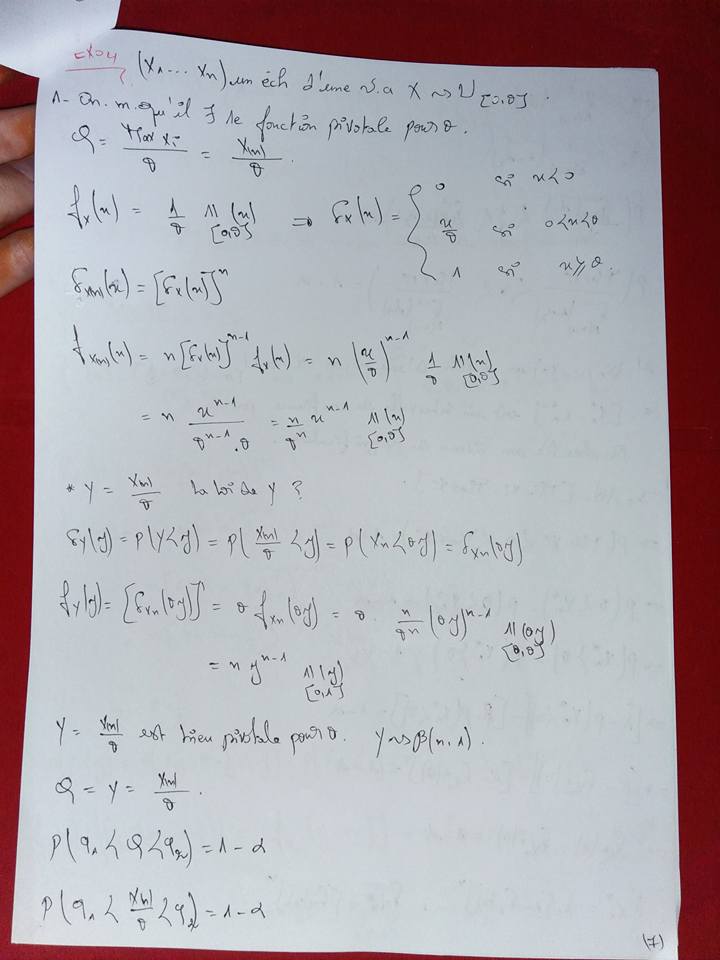 Exo4 (X1 ... Xn) un éch d'une v.a X ~> U[0,θ].
1- On. m. qu'il ∃ 1e fonction pivotale pour θ.
Q = Max Xi / θ = X(n) / θ.
fX(x) = 1/θ 𝟙(x) [0,θ] => FX(x) = { 0 si x<0
x/θ si 0<x<θ
1 si x≥θ.
FX(n)(x) = [FX(x)]^n
fX(n)(x) = n [FX(x)]^(n-1) fX(x) = n (x/θ)^(n-1) 1/θ 𝟙(x) [0,θ]
= n x^(n-1) / θ^(n-1).θ = n/θ^n x^(n-1) 𝟙(x) [0,θ]
* Y = X(n)/θ La loi de Y ?
FY(y) = P(Y<y) = P(X(n)/θ < y) = P(Xn < θy) = FXn(θy)
fY(y) = [FXn(θy)]' = θ fXn(θy) = θ n/θ^n (θy)^(n-1) 𝟙(θy) [0,θ]
= n y^(n-1) 𝟙(y) [0,1]
Y = X(n)/θ est bien pivotale pour θ. Y ~> β(n,1).
Q = Y = X(n)/θ.
P(q1 < Q < q2) = 1-α
P(q1 < X(n)/θ < q2) = 1-α
(7)